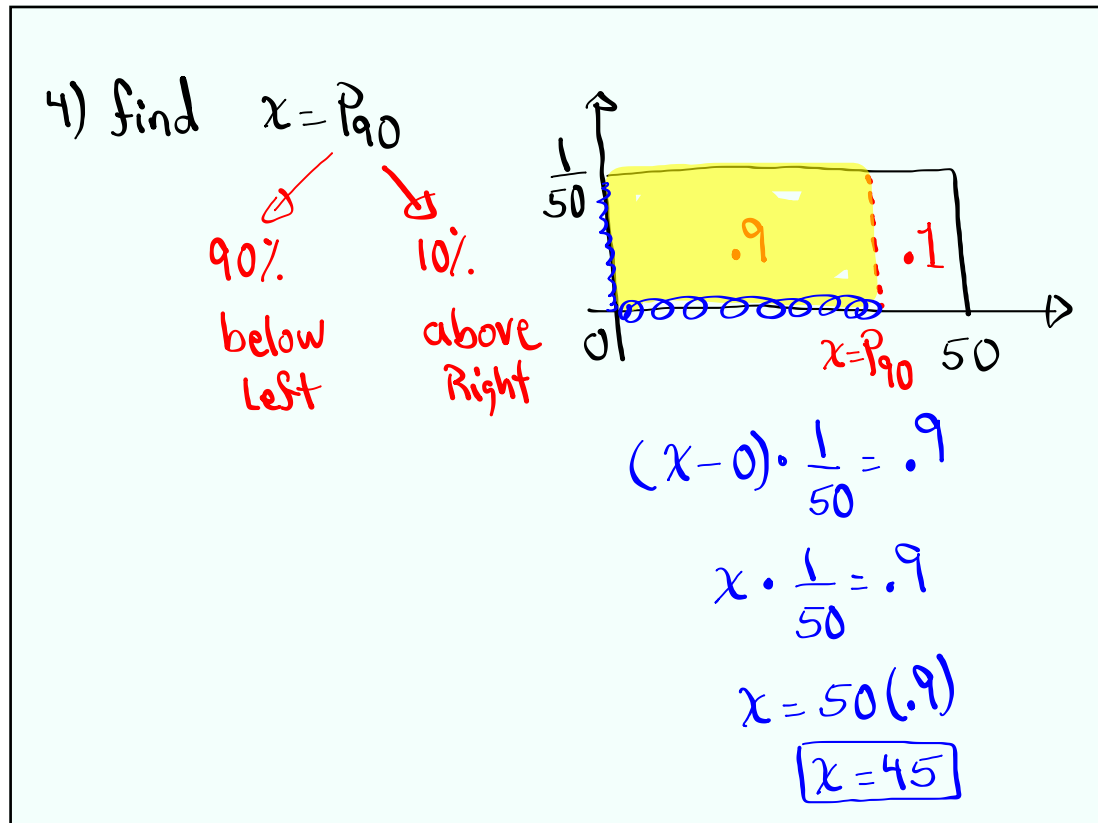 4) find x = P90
90% 10%
below above
Left Right
1/50
.9 .1
0 x=P90 50
(x-0)·1/50 = .9
x·1/50 = .9
x = 50(.9)
x = 45